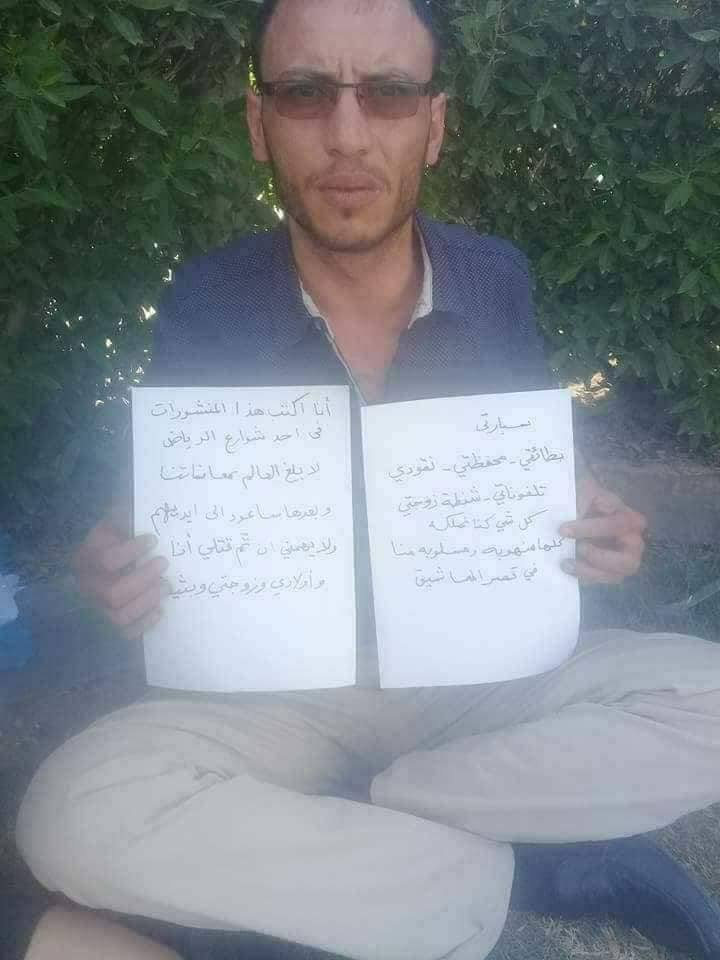 أنا اكتب هذا المنشورات
في احد شوارع الرياض
لابلغ العالم بمعاناتنا
وبعدها ساعود الى ايديهم
ولا يهمني ان تم قتلي أنا
وأولادي وزوجتي وبثينة
سيارتي
بطائقي - محفظتي - نقودي
تلفوناتي - شنطة زوجتي
كل شي كنا نملكه
كلها منهوبه ومسلوبه منا
في قصر المعاشيق